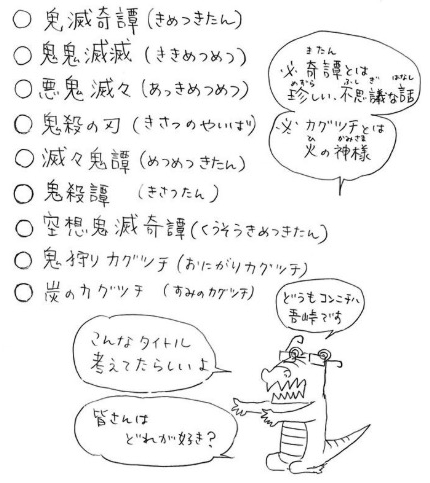 ○ 鬼滅奇譚(きめつきたん)
○ 鬼鬼滅滅(ききめつめつ)
○ 悪鬼滅々(あっきめつめつ)
○ 鬼殺の刃(きさつのやいば)
○ 滅々鬼譚(めつめつきたん)
○ 鬼殺譚(きさつたん)
○ 空想鬼滅奇譚(くうそうきめつきたん)
○ 鬼狩りカグツチ(おにがりカグツチ)
○ 炭のカグツチ(すみのカグツチ)
きたん
※ 奇譚とは
めずら ふしぎ はなし
珍しい、不思議な話
※ カグツチとは
ひ かみさま
火の神様
どうもコンニチハ
吾峠です
こんなタイトル
考えてたらしいよ
皆さんは
どれが好き?